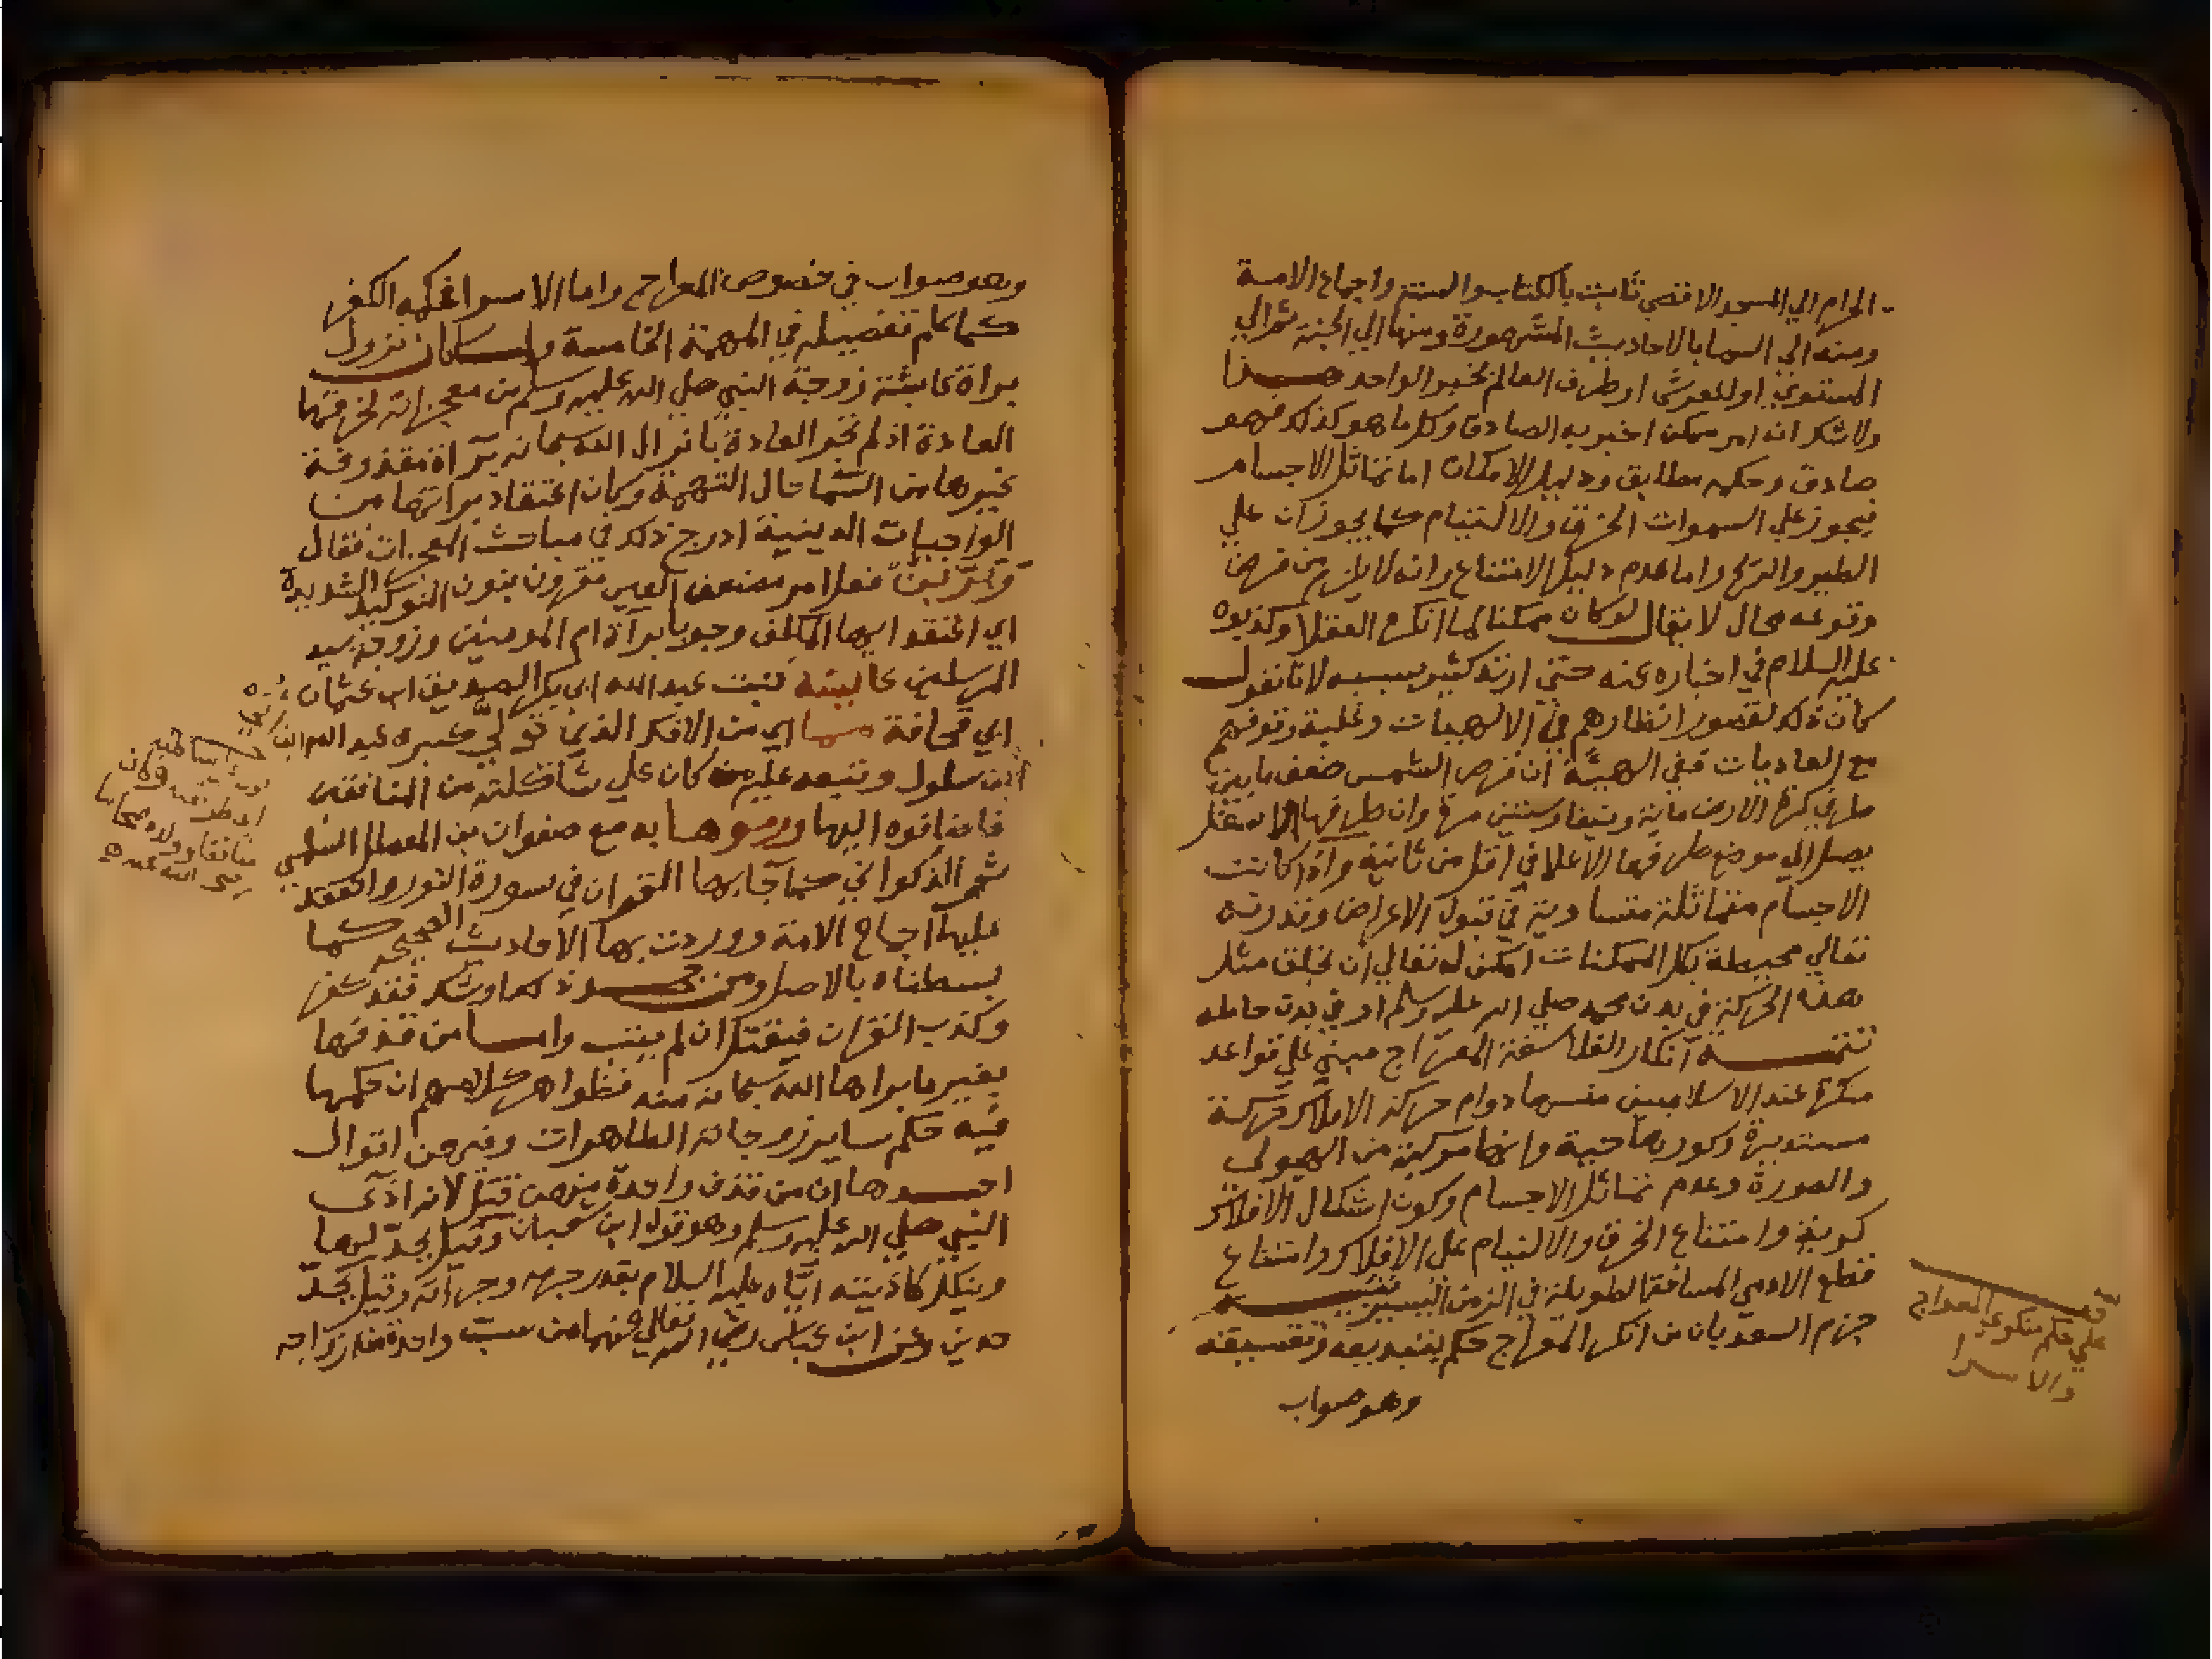 الحرام الي المسجد الاقصي ثابت بالكتاب والسنة واجماع الامة
ومنه الي السما بالاحاديث المشهورة ومنها الي الجنة ثم الي
المستوي او العرش او طرف العالم بخبر الواحد هذا
ولا شك انه امر ممكن اخبر به الصادق وكل ما هو كذلك فهو
صادق وحكمه مطابق ودليل الامكان اما تماثل الاجسام
فيجوز علي السموات الخرق والالتيام كما يجوزان علي
الطير والريح واما عدم دليل الامتناع وانه لا يلزم من فرض
وقوعه محال لا يقال لو كان ممكنا لما انكره العقلا وكذبوه
عليه السلام في اخباره عنه حتي ارتد كثير بسببه لانا نقول
كان ذلك لقصور انظارهم في الالهيات وغلبة وقوفهم
مع العاديات ففي الهيئة ان قرص الشمس ضعف ما بين
طرفي كرة الارض ماية ونيفا وستين مرة وان طرفها الاسفل
يصل الي موضع طرفها الاعلا في اقل من ثانية واذا كانت
الاجسام متماثلة متساوية في قبول الاعراض وقدرته
تعالي محيطة بكل الممكنات امكن له تعالي ان يخلق مثل
هذه الحركة في بدن محمد صلي الله عليه وسلم او في بدن حامله
تتمة انكار الفلاسفة المعراج مبني علي قواعد
منكرة عند الاسلاميين منها دوام حركة الافلاك حركة
مستديرة وكونها حية وانها مركبة من الهيولي
والصورة وعدم تماثل الاجسام وكون اشكال الافلاك
كروية وامتناع الخرق والالتيام علي الافلاك وامتناع
قطع الادمي المسافة الطويلة في الزمن اليسير تنبيه
جزم السعد بان من انكر المعراج حكم بتبديعه وتفسيقه
وهو صواب
قف
علي حكم منكري المعراج
والاسرا
وهو صواب في خصوص المعراج واما الاسرا فحكمه الكفر
كما تفصيله في المهمة الخامسة ولما كان نزول
براة عايشة زوجة النبي صلي الله عليه وسلم من معجزاته لخرقها
العادة اذ لم تجر العادة بانزال الله سبحانه برآة مقذوفة
غيرها من السما حال التهمة وكان اعتقاد براتها من
الواجبات الدينية ادرج ذلك في مباحث المعجزات فقال
وبرّئن فعل امر مضعف العين مقرون بنون التوكيد الشديدة
اي اعتقد ايها المكلف وجوبا برآة ام المومنين وزوجة سيد
المرسلين عايشة بنت عبد الله ابي بكر الصديق ابن عثمان
ابي قحافة مما اي من الافك الذي تولي كبره عبد الله ابن ابي
ابن سلول وتبعه عليه من كان علي شاكلته من المنافقين
فاضافوه اليها ورموها به مع صفوان بن المعطل السلمي
ثم الذكواني كما جا بها القران في سورة النور وانعقد
عليها اجماع الامة ووردت بها الاحاديث الصحيحة كما
بسطناه بالاصل ومن جحده كما وشك فقد كفر
وكذب القران فيقتل ان لم يتب واما من قذفها
بغير ما براها الله سبحانه منه فظواهر كلامهم ان حكمها
فيه حكم ساير زوجاته الطاهرات وفيهن اقوال
احدها ان من قذف واحدة منهن قتل لانه اذي
النبي صلي الله عليه وسلم وهو قول ابن شعبان وقيل يحد لها
وينكل كاذيته اياه عليه السلام بقدر جرمه وجراته وقيل يحد
حدين وعن ابن عباس رضي الله تعالي عنهما من سب واحدة من ازواجه
منافقا وولده صحابيا
رضي الله عنه